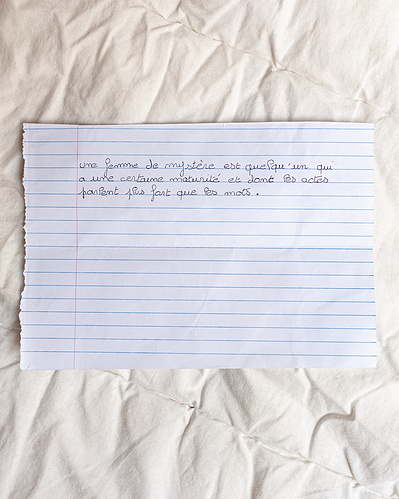 une femme de mystère est quelqu'un qui
a une certaine maturité et dont les actes
parlent plus fort que les mots.